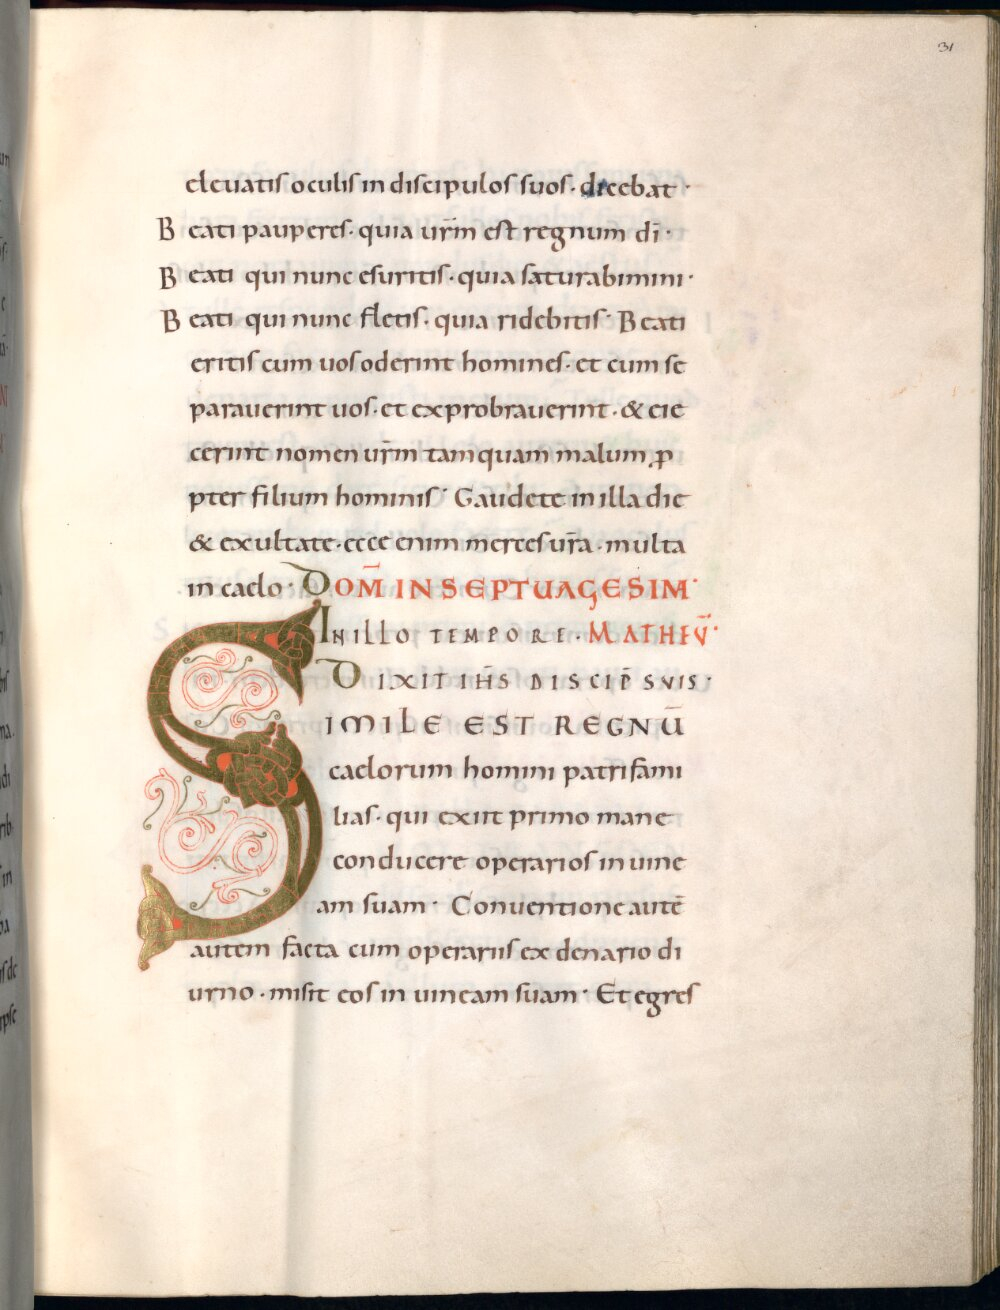 31
eleuatis oculis in discipulos suos · dicebat ·
Beati pauperes · quia ur̄m est regnum dī ·
Beati qui nunc esuritis · quia saturabimini ·
Beati qui nunc fletis · quia ridebitis · Beati
eritis cum uos oderint homines · et cum se
parauerint uos · et exprobrauerint · & eie
cerint nomen ur̄m tamquam malum, p̱
pter filium hominis · Gaudete in illa die
& exultate · ecce enim merces ur̄a · multa
in caelo · DOM̄ IN SEPTUAGESIM ·
IN ILLO TEMPORE · MATHEV̄ ·
DIXIT IHS̄ DISCIP̄ SVIS ·
SIMILE EST REGNŪ
caelorum homini patrifami
lias · qui exiit primo mane
conducere operarios in uine
am suam · Conuentione autē
autem facta cum operariis ex denario di
urno · misit eos in uineam suam · Et egres